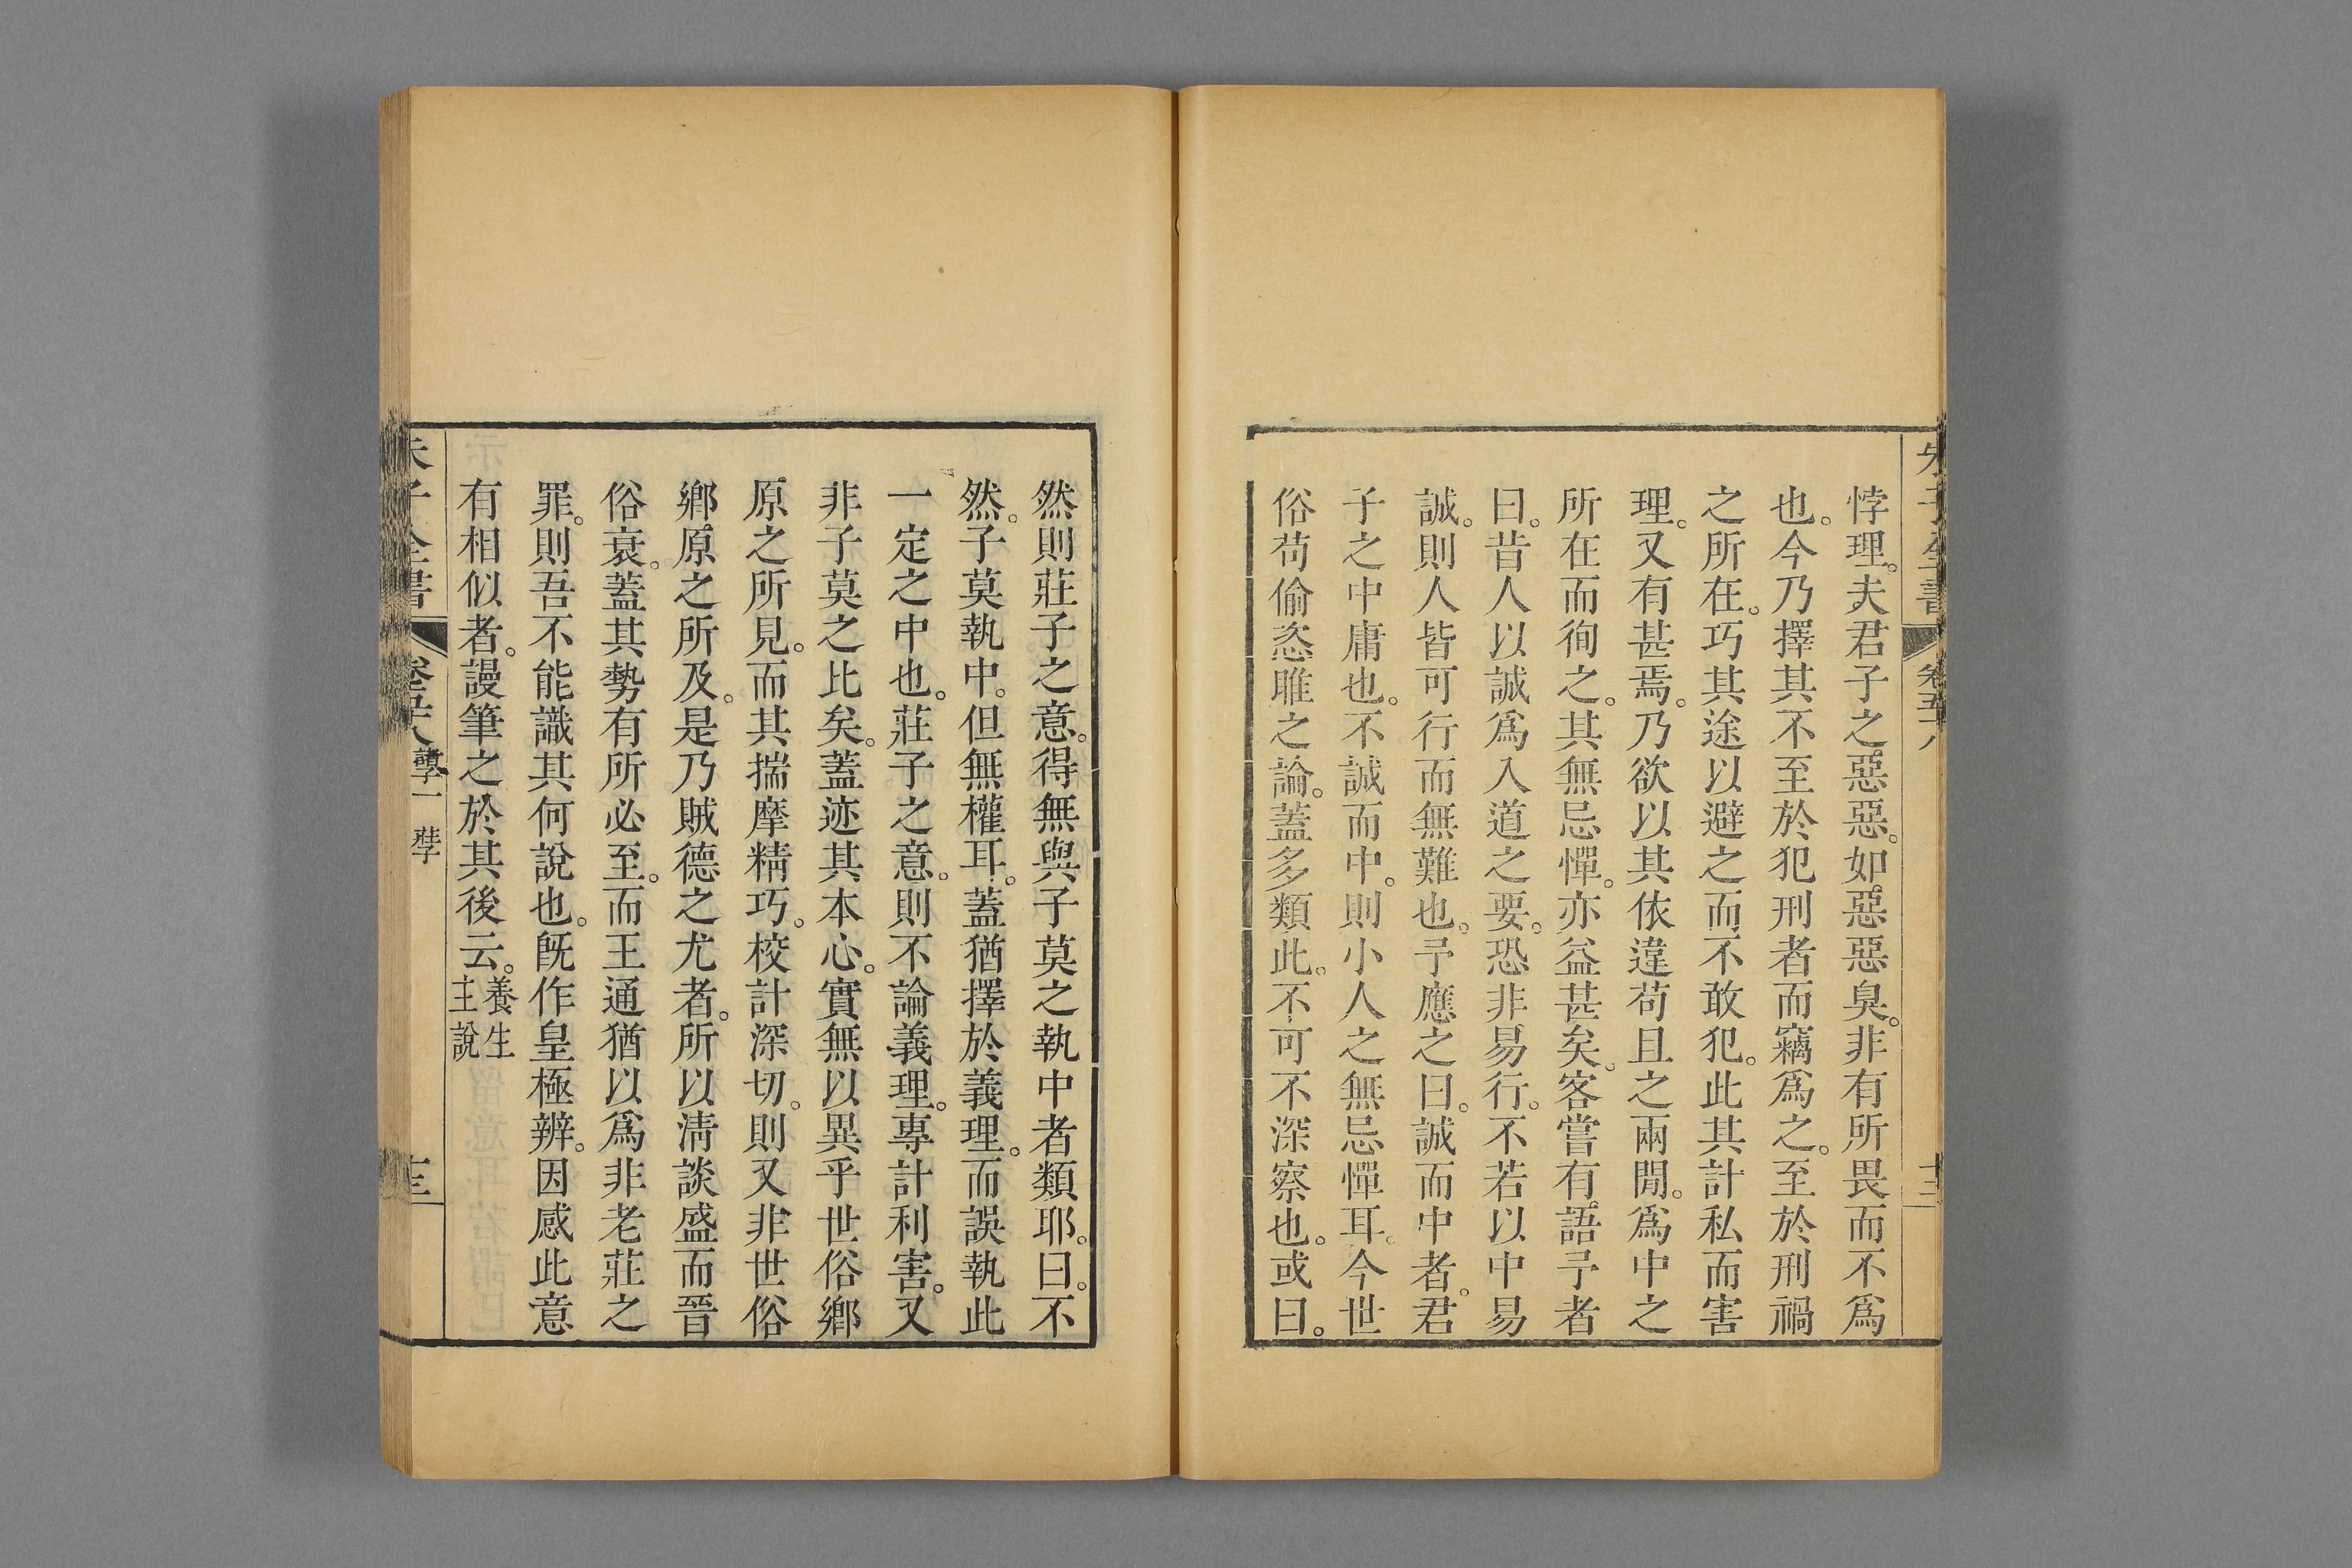 朱子全書
卷五十八
十三
悖理。夫君子之惡惡。如惡惡臭。非有所畏而不爲
也。今乃擇其不至於犯刑者而竊爲之。至於刑禍
之所在。巧其途以避之而不敢犯。此其計私而害
理。又有甚焉。乃欲以其依違苟且之兩閒。爲中之
所在而徇之。其無忌憚。亦益甚矣。客嘗有語予者
曰。昔人以誠爲入道之要。恐非易行。不若以中易
誠。則人皆可行而無難也。予應之曰。誠而中者。君
子之中庸也。不誠而中。則小人之無忌憚耳。今世
俗苟偷恣睢之論。蓋多類此。不可不深察也。或曰。
然則莊子之意。得無與子莫之執中者類耶。曰。不
然。子莫執中。但無權耳。蓋猶擇於義理。而誤執此
一定之中也。莊子之意。則不論義理。專計利害。又
非子莫之比矣。蓋迹其本心。實無以異乎世俗鄉
原之所見。而其揣摩精巧。校計深切。則又非世俗
鄉原之所及。是乃賊德之尤者。所以淸談盛而晉
俗衰。蓋其勢有所必至。而王通猶以爲非老莊之
罪。則吾不能識其何說也。旣作皇極辨。因感此意
有相似者。謾筆之於其後云。養生
主說
朱子全書
卷五十八